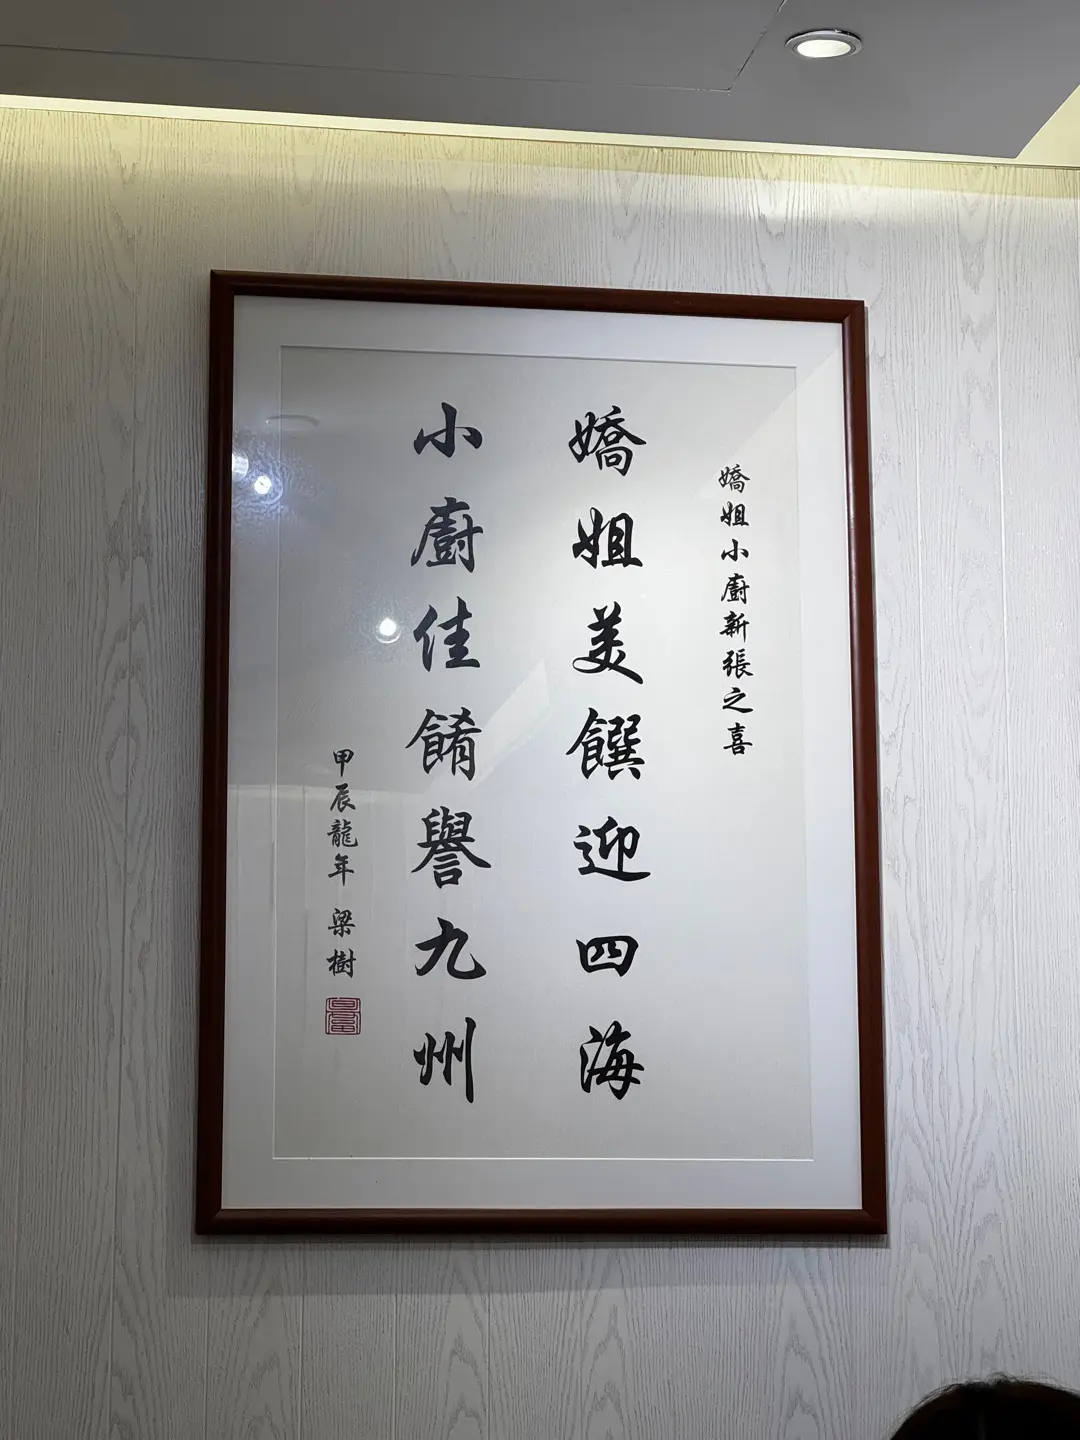 嬌姐小廚新張之喜
嬌姐美饌迎四海
小廚佳餚譽九州
甲辰龍年 梁樹